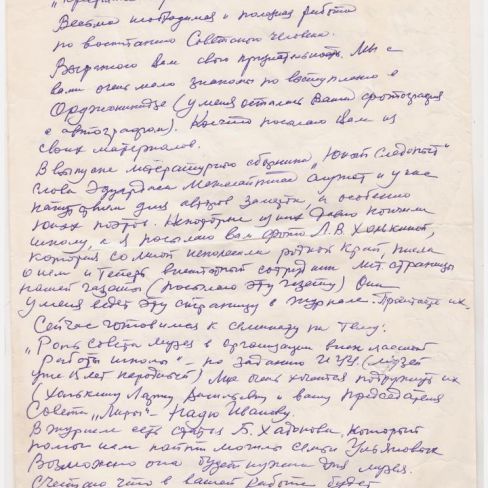 Весьма необходимая и полезная работа
по воспитанию Советского человека.
Выражаю Вам свою признательность. Мы с
вами очень мало знакомы по выступлению в
Орджоникидзе (у меня осталась Ваша фотография
с автографом). Кое что посылаю Вам из
своих материалов.
В выпуске литературного сборника „Юный Следопыт"
слова Эдуардаса Межелайтиса служат и у нас
напутствием для авторов заметок, и особенно
юных поэтов. Некоторые из них давно кончили
школу, а я посылаю вам фото Л.В. Хонькиной,
которая со мной исполняла родной Край, писала
о нем и теперь внештатный сотрудник лит страницы
нашей газеты (посылаю эту газету) Она
у меня ведет эту страницу в журнале. Прочтите их.
Сейчас готовимся к семинару на тему:
„Роль Совета музея в организации внеклассной
работы школы" – по заданию ИУУ (музей
уже лет народный) Мне очень хочется подружить их
(Хонькину Ларису Васильевну и вашу председателя
Совет „Лиры" – Надю Иванову.
В журнале есть статья Б. Хадонова, который
помог нам найти могилы семьи Ульяновых
Возможно она будет нужна для музея.
Считаю что в вашей работе будет